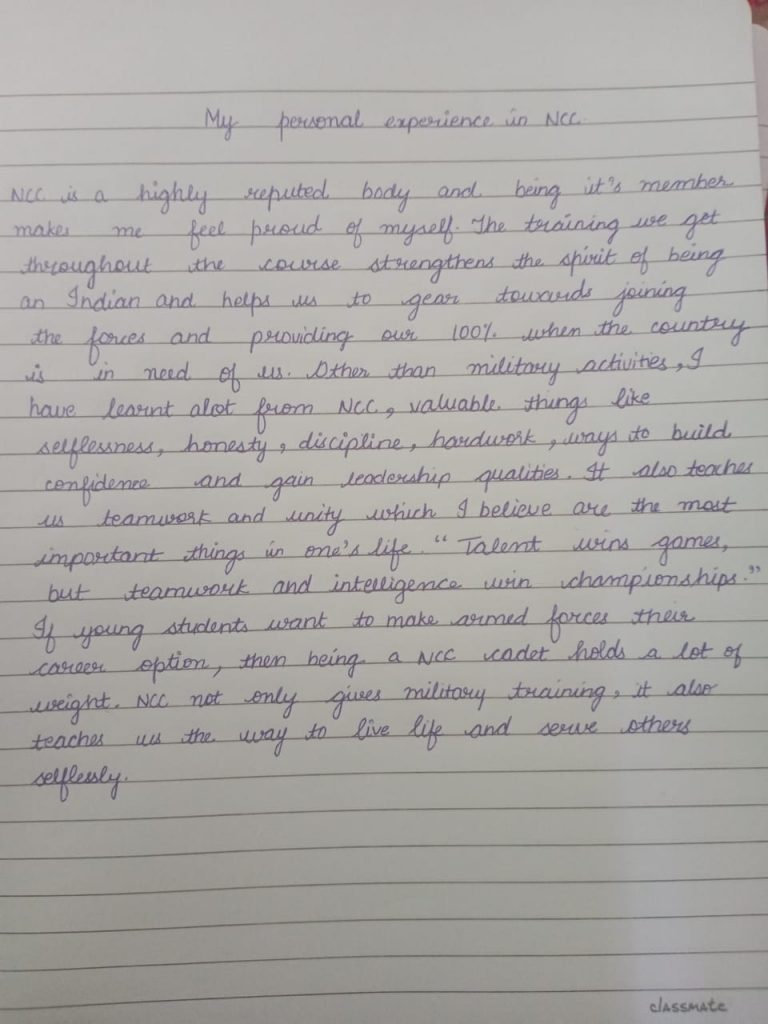 My personal experience in NCC
NCC is a highly reputed body and being it's member
makes me feel proud of myself. The training we get
throughout the course strengthens the spirit of being
an Indian and helps us to gear towards joining
the forces and providing our 100% when the country
is in need of us. Other than military activities, I
have learnt alot from NCC, valuable things like
selflessness, honesty, discipline, hardwork, ways to build
confidence and gain leadership qualities. It also teaches
us teamwork and unity which I believe are the most
important things in one's life. "Talent wins games,
but teamwork and intelligence win championships."
If young students want to make armed forces their
career option, then being a NCC cadet holds a lot of
weight. NCC not only gives military training, it also
teaches us the way to live life and serve others
selflessly.
classmate